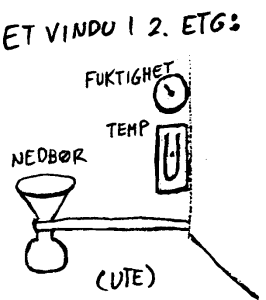 ET VINDU I 2. ETG:
FUKTIGHET
TEMP
NEDBØR
(UTE)